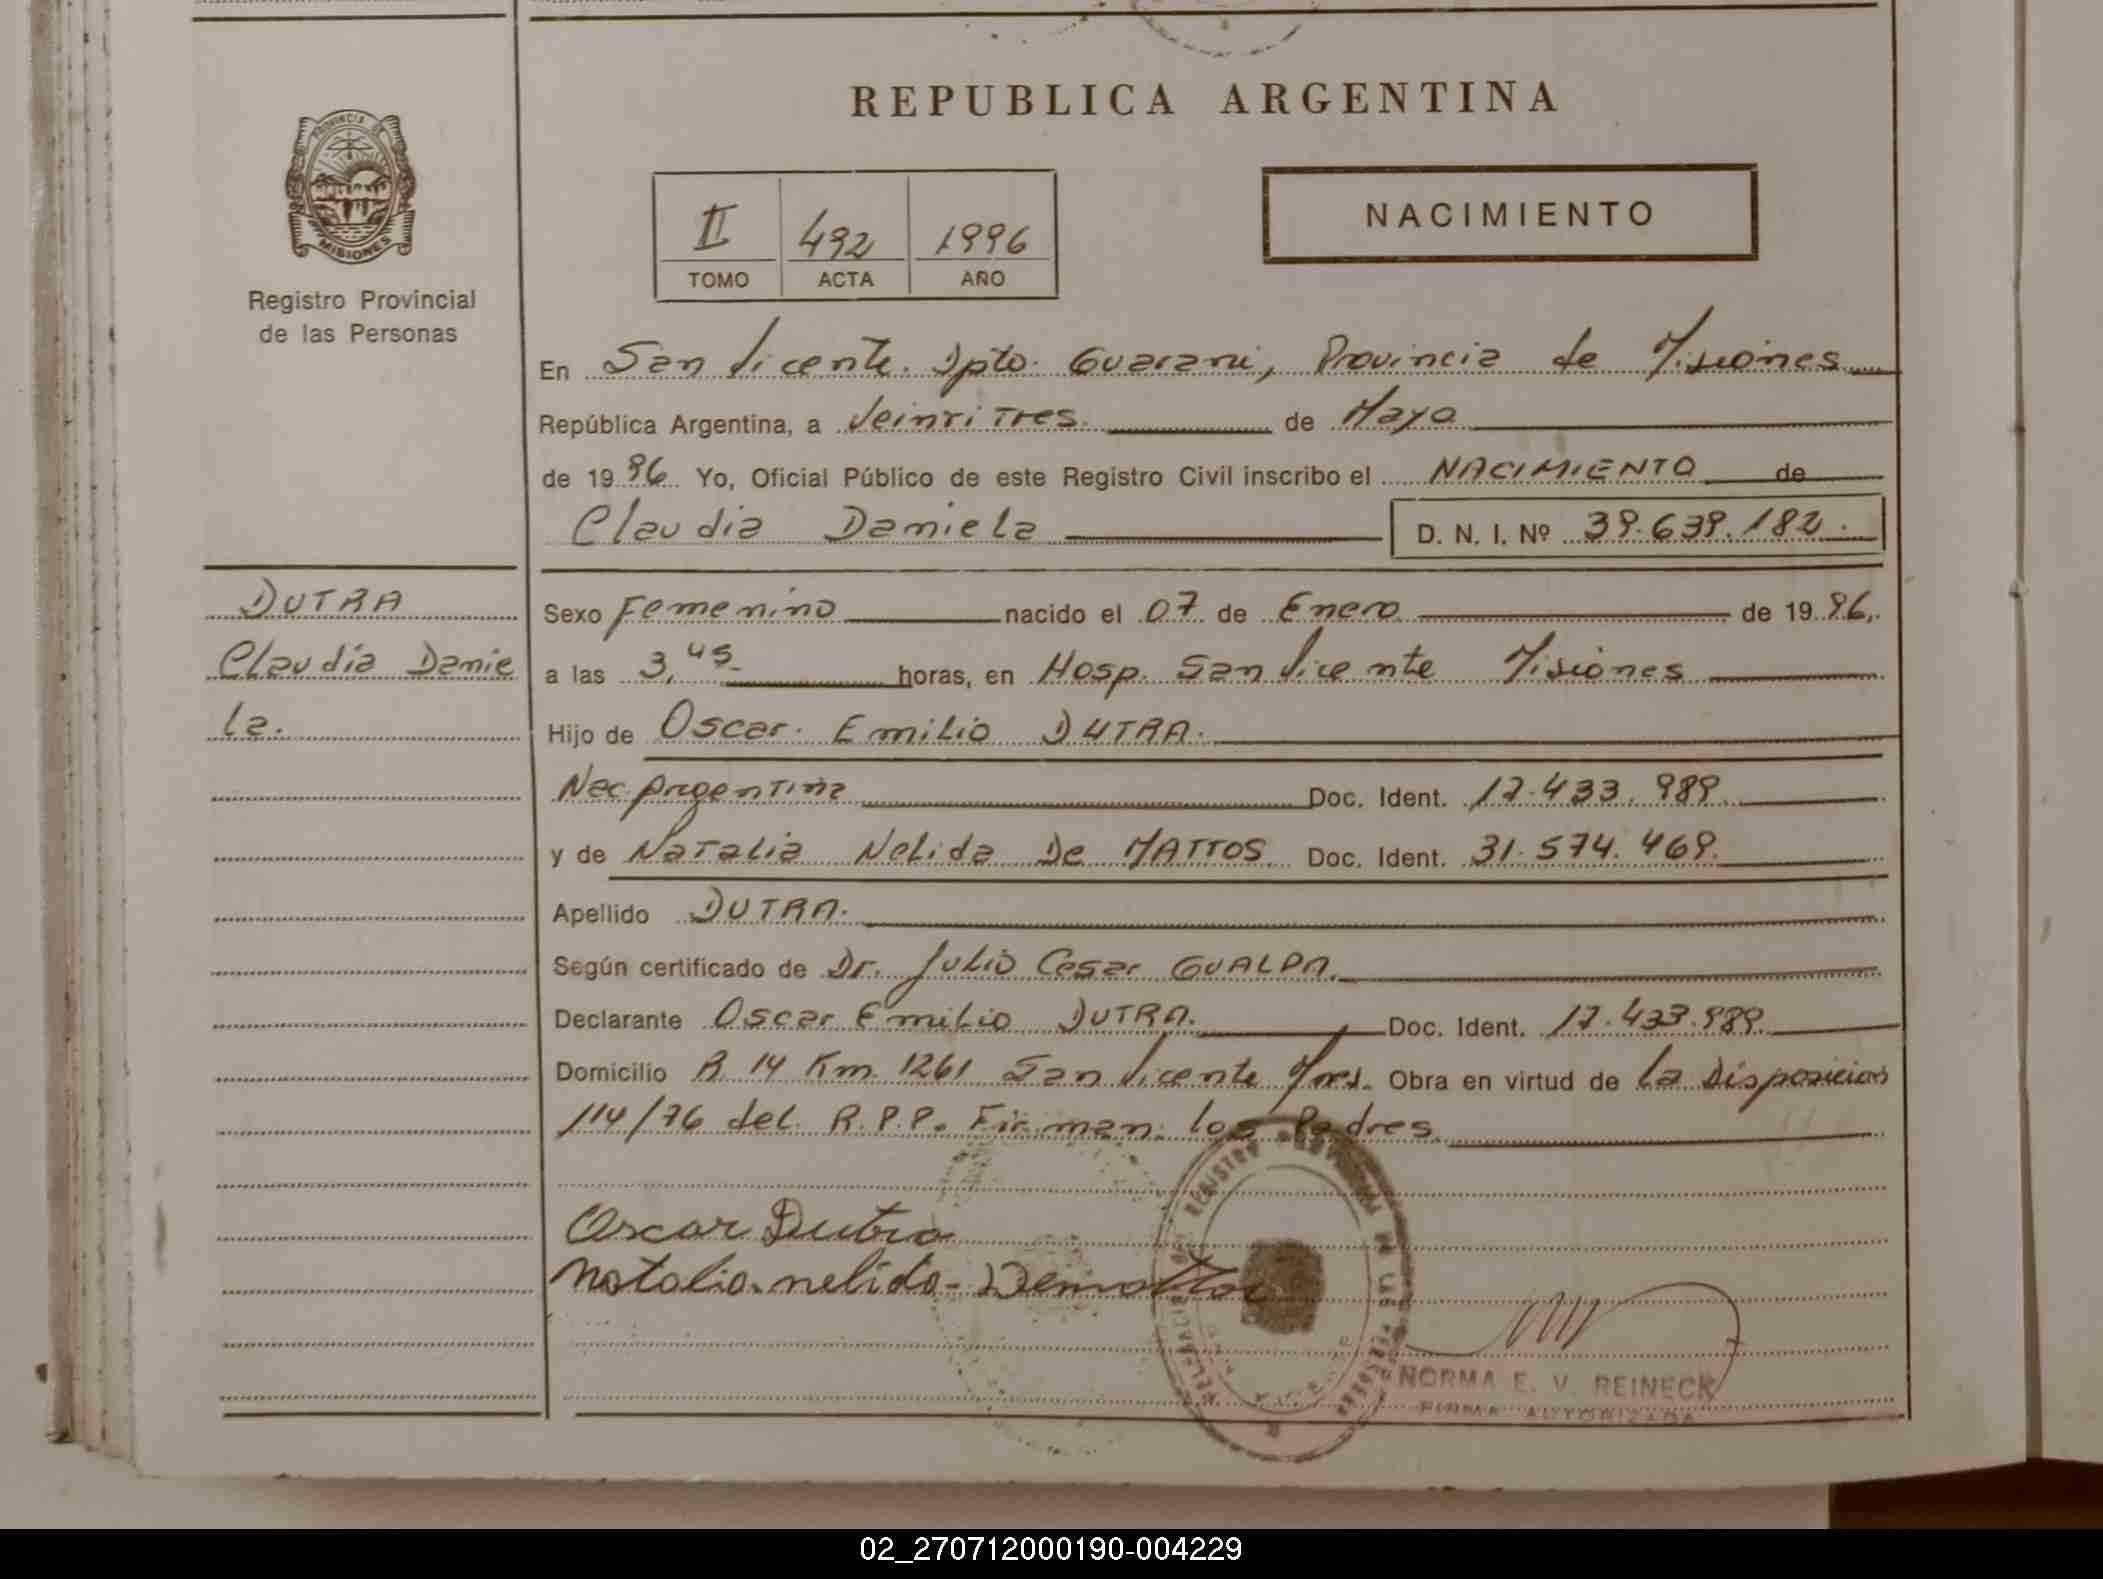 PROVINCIA DE
MISIONES
Registro Provincial
de las Personas
REPUBLICA ARGENTINA
II 492 1996
TOMO ACTA AÑO
NACIMIENTO
En San Vicente. Dpto. Guarani, Provincia de Misiones
República Argentina, a Veintitres de Mayo
de 1996 Yo, Oficial Público de este Registro Civil inscribo el NACIMIENTO de
Claudia Daniela D. N. I. Nº 39.639.182.
DUTRA
Claudia Danie
la.
Sexo Femenino nacido el 07 de Enero de 1996,
a las 3,45 horas, en Hosp. San Vicente Misiones
Hijo de Oscar. Emilio DUTRA.
Nac Argentina Doc. Ident. 17.433.989
y de Natalia Nelida De MATTOS Doc. Ident. 31.574.469.
Apellido DUTRA.
Según certificado de Dr. Julio Cesar GUALDA.
Declarante Oscar Emilio DUTRA. Doc. Ident. 17.433.989
Domicilio R. 14 Km 1261 San Vicente Mnes. Obra en virtud de la Disposicion
114/76 del R.P.P. Firman los Padres
Oscar Dutra
Natalia nelida Demattos
NORMA E. V. REINECK
FIRMA AUTORIZADA
02_270712000190-004229